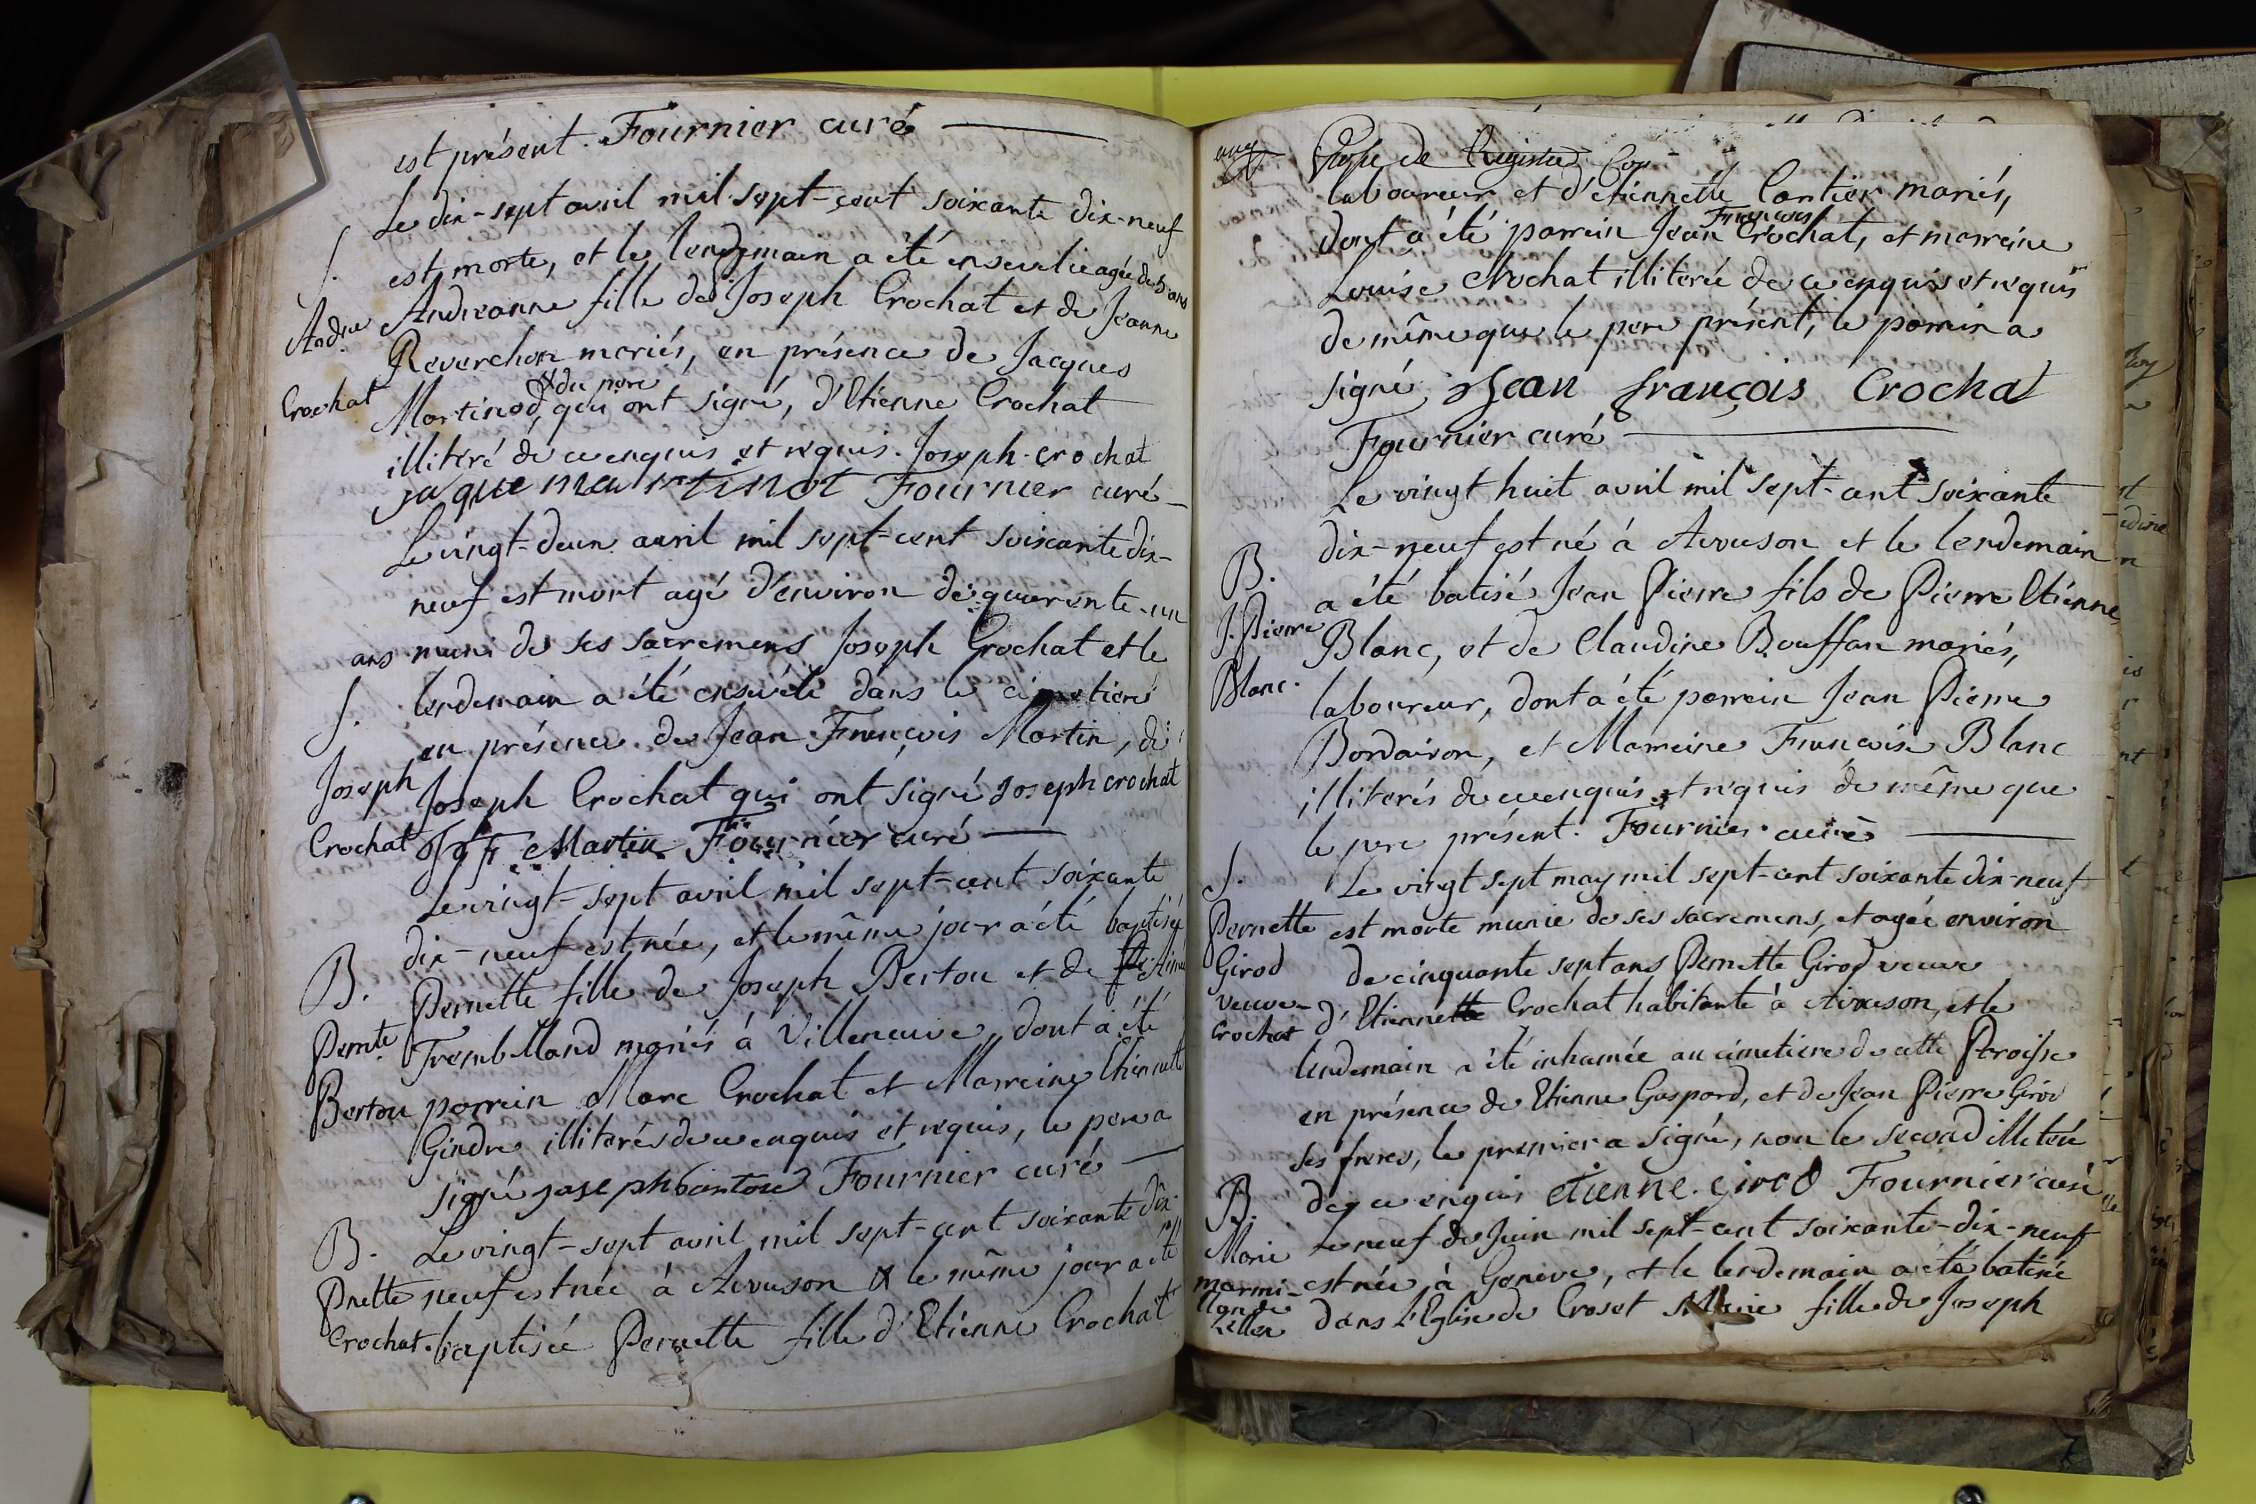 est présent. Fournier curé
Le dix-sept avril mil sept-cent soixante dix-neuf
S. est morte, et le lendemain a été ensevelie agée de 5 ans
Andre Andreanne fille de Joseph Crochat et de Jeanne
Reverchon mariés, en présence de Jacques
& du pere
Crochat Martinod, qui ont signé, d'Etienne Crochat
illiteré de ce enquis et requis. Joseph crochat
jaque martinot Fournier curé
Le vingt-deux avril mil sept-cent soixante dix-
neuf est mort agé d'environ de quarente-un
ans muni de ses sacremens Joseph Crochat et le
S. lendemain a été enseveli dans le cimetiere
en présence de Jean François Martin, de
Joseph Joseph Crochat qui ont signé Joseph crochat
Crochat Martin Fournier curé
Le vingt-sept avril mil sept-cent soixante
dix-neuf est née, et le même jour a été baptisée
B. Pernette fille de Joseph Bertou et de
Pernte Tremblland mariés à Villeneuve, dont a été
Bertou parrein Marc Crochat et Marreine Etiennette
Gindre illiterés de ce enquis et requis, le pere a
signé joseph bertou Fournier curé
B. Le vingt-sept avril mil sept-cent soixante dix
Pnette neuf est née à Avouson & le même jour a été
Crochat. baptisée Pernette fille d'Etienne Crochat
de Registre
laboureur et d'etiennette Cartier mariés,
François
dont a été parrein Jean Crochat, et marreine
Louise Crochat illiterée de ce enquis et requis
de même que le pere présent, le parrein a
signé Jean françois Crochat
Fournier curé
Le vingt huit avril mil sept-cent soixante
dix-neuf est né à Avouson et le lendemain
B. a été batisé Jean Pierre fils de Pierre Etienne
J. Pierre Blanc, et de Claudine Bouffan mariés,
Blanc. laboureur, dont a été parrein Jean Pierre
Bordairon, et Marreine Françoise Blanc
illiterés de ce enquis et requis de même que
le pere présent. Fournier curé
S. Le vingt sept may mil sept-cent soixante dix-neuf
Pernette est morte munie de ses sacremens, et agée environ
Girod de cinquante sept ans Pernette Girod veuve
veuve- d'Etiennette Crochat habitante à Avouson, et le
Crochat
lendemain a été inhumée au cimetiere de cette Paroisse
en présence de Etienne Gaspard, et de Jean Pierre Girod
ses freres, le premier a signé, non le second illiteré
de ce enquis etienne girod Fournier curé
B. Le neuf de Juin mil sept-cent soixante-dix-neuf
Marie est née à Geneve, et le lendemain a été batisée
dans l'Eglise de Croset Marie fille de Joseph